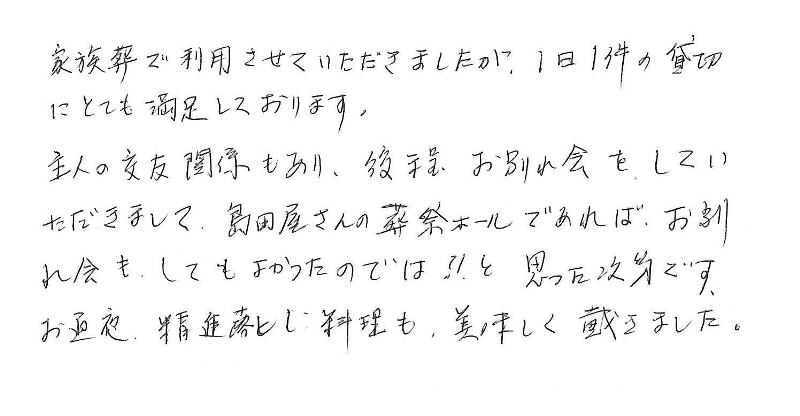 家族葬で利用させていただきましたが、1日1件の貸切
にとても満足しております。
主人の交友関係もあり、後程、お別れ会をしてい
ただきまして、島田屋さんの葬祭ホールであれば、お別
れ会も、してもよかったのでは!!と思った次第です。
お通夜、精進落とし料理も、美味しく戴きました。